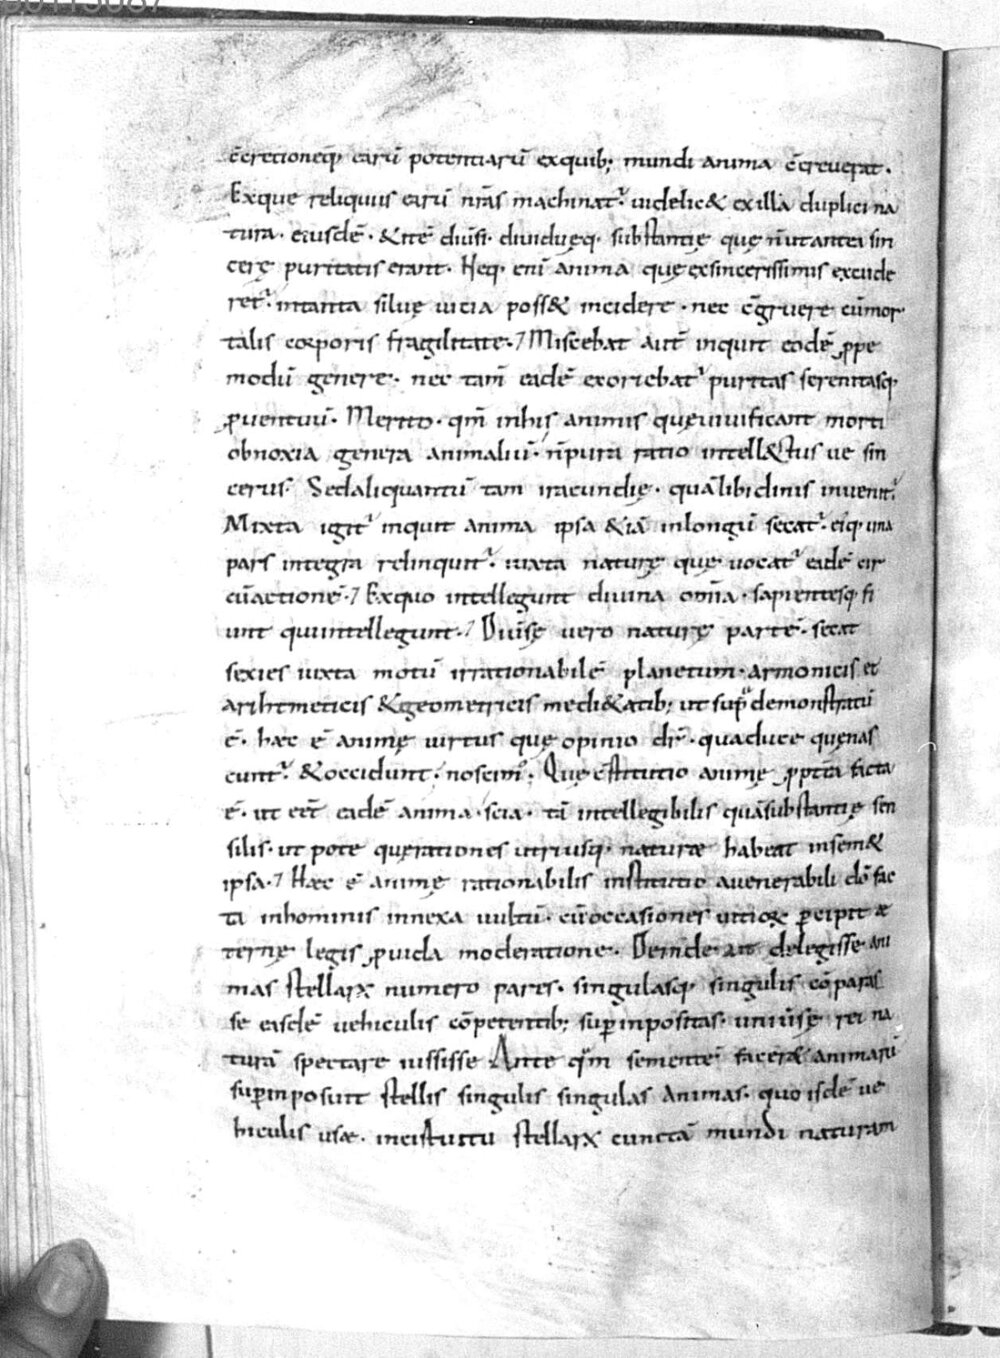 c̄cretioneq; earū potentiarū exquib; mundi anima c̄creuerat.
Exque reliquiis earū nr̄as machinat᷑. uidelic& exilla duplici na
tura. eiusdē. &itē diuisi. diuiduęq. substantię quę n̄ut antea sin
cerę puritatis erant. Neq. enī anima quę exsincerissimis excude
ret᷑. intanta siluę uicia poss& incidere. nec c̄gruere cūmor
talis corporis fragilitate. Miscebat aut̄ inquit eodē ꝓpe
modū genere. nec tam̄ eadē exoriebat᷑ puritas serenitasq;
ꝓuentuū. Merito. qm̄ inhis animis quęuiuificant morti
obnoxia genera animaliū. n̄pura ratio intell&tus ue sin
cerus. Sedaliquantū tam iracundię. quālibidinis inuenit᷑.
Mixta igit᷑ inquit anima ipsa &iā inlongū secat᷑. eiq; una
pars integra relinquit᷑. iuxta naturę quę uocat᷑ eadē cir
cūactionē. Exquo intellegunt diuina om̄ia. sapientesq; fi
unt quiintellegunt. Diuisę uero naturę partē. secat
sexies iuxta motū irrationabilē planetum. armonicis et
arihtmeticis &geometricis medi&atib; ut sup̄ demonstratū
ē. hæc ē animę uirtus quę opinio dr̄. quaduce quęnas
cunt᷑. &occidunt. noscim᷒. Quę c̄stitutio animę ꝓpterea facta
ē. ut eēt eadē anima. scia. tā intellegibilis quāsubstantię sen
silis. ut pote quęrationes utriusq; naturæ habeat insem&
ipsa. Hæc ē animę rationabilis institutio auenerabili dō fac
ta inhominis innexa uultū. cūoccasiones uitioꝝ ꝑcipit æ
ternę legis ꝓuida moderatione. Deinde ait delegisse ani
mas stellarꝝ numero pares. singulasq; singulis cōparas
se eisdē uehiculis cōpetentib; suꝑinpositas. uniuersę rei na
turā spectare iussisse Ante qm̄ sementē facer& animarū
suꝑinposuit stellis singulis singulas animas. quo isdē ue
hiculis usæ. incistuitu stellarꝝ cunctā mundi naturam